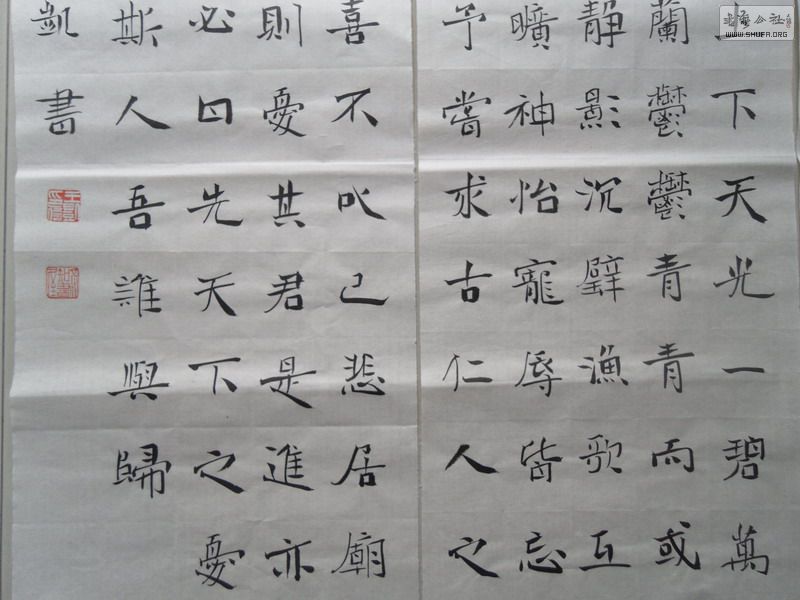 下天光一碧萬
蘭鬱鬱青青而或
靜影沉璧漁歌互
曠神怡寵辱皆忘
予嘗求古仁人之
喜不以己悲居廟
則憂其君是進亦
必曰先天下之憂
斯人吾誰與歸
凱書
WWW.SHUFA.ORG